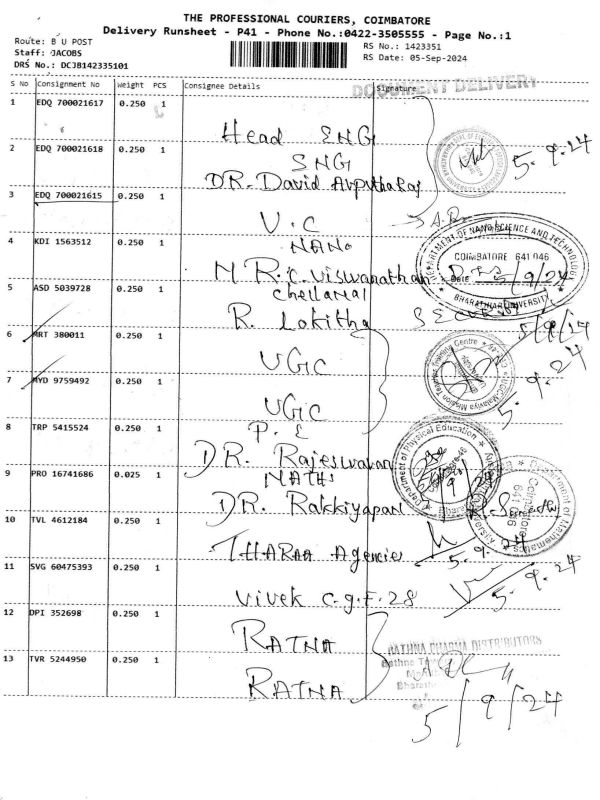 THE PROFESSIONAL COURIERS, COIMBATORE
Delivery Runsheet - P41 - Phone No.:0422-3505555 - Page No.:1
Route: B U POST
Staff: JACOBS
DRS No.: DCJB142335101
RS No.: 1423351
RS Date: 05-Sep-2024
DOCUMENT DELIVERY
S No Consignment No Weight PCS Consignee Details Signature
1 EDQ 700021617 0.250 1
Head ENG
2 EDQ 700021618 0.250 1
ENG
5.9.24
DR. David
3 EDQ 700021615 0.250 1
V.C
4 KDI 1563512 0.250 1
NANO
MR.C. Viswanathan
DEPARTMENT OF NANO SCIENCE AND TECHNOLOGY
COIMBATORE 641 046
DATE 5/9/24
BHARATHIAR UNIVERSITY
5 ASD 5039728 0.250 1
Chellamal
R. Lokitha
5/9/24
6 ART 380011 0.250 1
UGC
7 MYD 9759492 0.250 1
UGC
5.9.24
8 TRP 5415524 0.250 1
P.E
DR. Rajeswaran
Department of Physical Education
9 PRO 16741686 0.025 1
MATHS
DR. Rakkiyapan
Department of Mathematics
Coimbatore
10 TVL 4612184 0.250 1
THARAA Agencies
5.9.24
11 SVG 60475393 0.250 1
Vivek C.G.F. 28
5.9.24
12 DPI 352698 0.250 1
RATNA
RATHNA PHARMA DISTRIBUTORS
13 TVR 5244950 0.250 1
RATNA
5/9/24